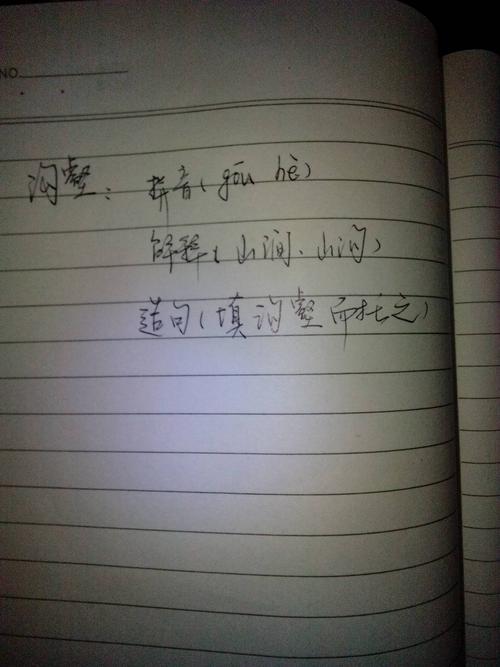 NO.
沟壑：拼音(gōu hè)
解释(山涧、山沟)
造句(填沟壑而托之)